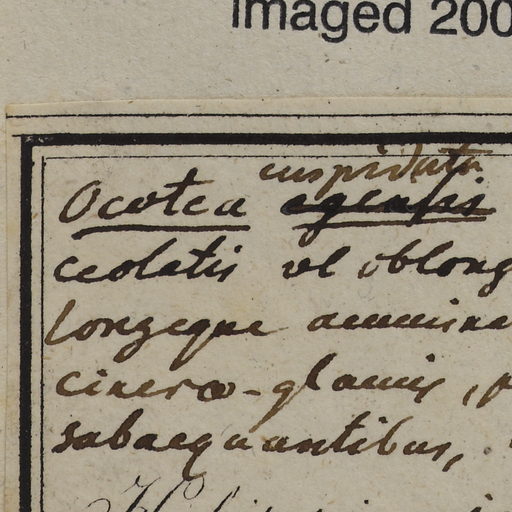 Imaged 200
cuspidata
Ocotea
ceolatis vel oblong
longeque acumina
cinereo-glaucis, p
subaequantibus,